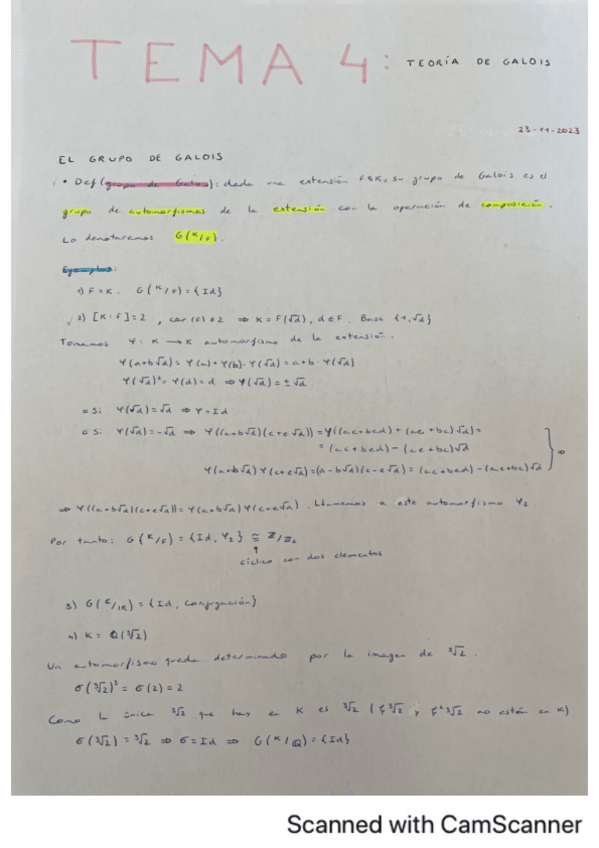 TEMA 4: TEORÍA DE GALOIS
23-11-2023
EL GRUPO DE GALOIS
• Def (grupo de Galois): dada una extensión F⊆K, su grupo de Galois es el
grupo de automorfismos de la extensión con la operación de composición.
Lo denotaremos G(K/F).
Ejemplos:
1) F=K. G(K/F)={Id}
2) [K:F]=2, car(F)≠2 ⇒ K=F(√d), d∈F. Base {1,√d}
Tomamos φ: K → K automorfismo de la extensión.
φ(a+b√d)=φ(a)+φ(b)·φ(√d)=a+b·φ(√d)
φ(√d)²=φ(d)=d ⇒ φ(√d)=±√d
o Si φ(√d)=√d ⇒ φ=Id
o Si φ(√d)=-√d ⇒ φ((a+b√d)(c+e√d))=φ((ac+bed)+(ae+bc)√d)=
=(ac+bed)-(ae+bc)√d
φ(a+b√d)φ(c+e√d)=(a-b√d)(c-e√d)=(ac+bed)-(ae+bc)√d ⇒
⇒ φ((a+b√d)(c+e√d))=φ(a+b√d)φ(c+e√d). Llamamos a este automorfismo φ₂
Por tanto: G(K/F)={Id, φ₂} ≅ Z/Z₂
↑
cíclico con dos elementos
3) G(C/IR)={Id, conjugación}
4) K=Q(∛2)
Un automorfismo queda determinado por la imagen de ∛2.
σ(∛2)³=σ(2)=2
Como la única ∛2 que hay en K es ∛2 (ξ∛2 y ξ²∛2 no están en K)
σ(∛2)=∛2 ⇒ σ=Id ⇒ G(K/Q)={Id}
Scanned with CamScanner